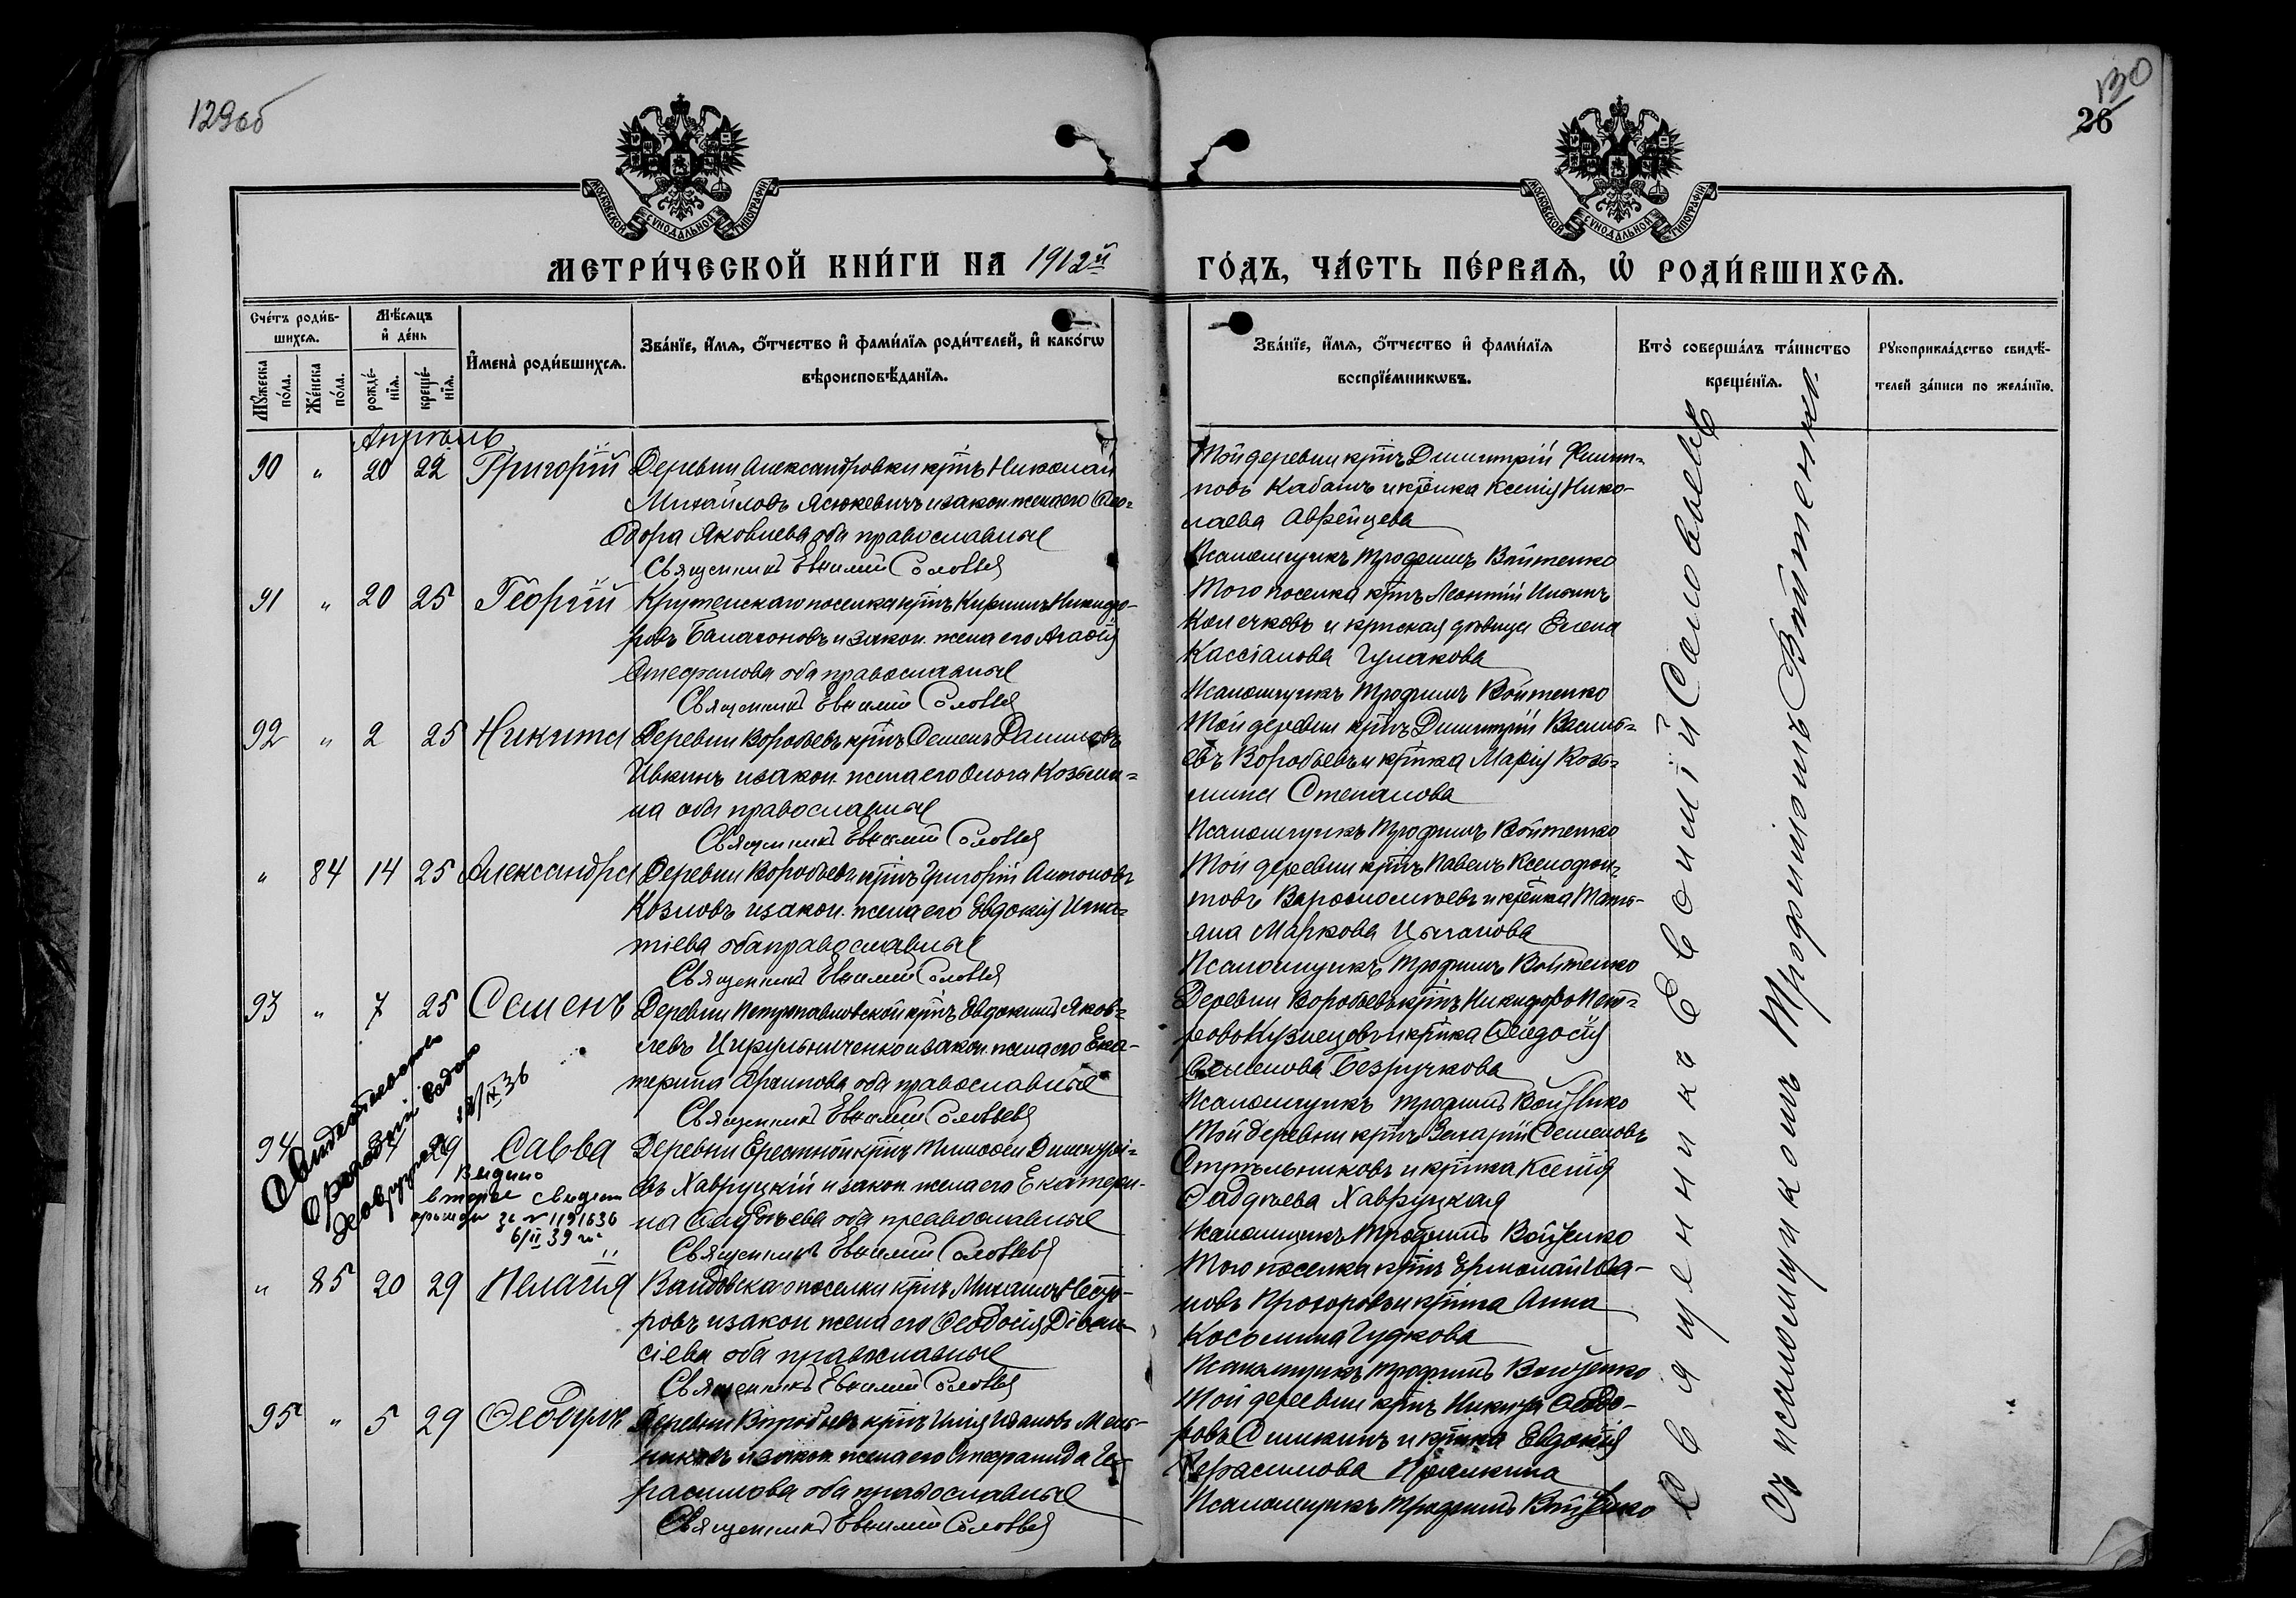 129об
130
26
МОСКОВСКОЙ СѴНОДАЛЬНОЙ ТИПОГРАФІИ
МОСКОВСКОЙ СѴНОДАЛЬНОЙ ТИПОГРАФІИ
МЕТРИ́ЧЕСКОЙ КНИ́ГИ НА 1912й
ГО́ДЪ, ЧА́СТЬ ПЕ́РВАЯ, Ѡ҆ РОДИ́ВШИХСЯ.
Сче́тъ роди́в-
шихся.
Мѣ́сяцъ
и҆ де́нь
Мꙋ́жеска по́ла.
Же́нска по́ла.
рожде́-
нїя.
креще́-
нїя.
И҆мена̀ роди́вшихся.
Зва́нїе, и҆́мя, ѻ҆́тчество и҆ фами́лїя роди́телей, и҆ како́гѡ
вѣроисповѣ́данїя.
Зва́нїе, и҆́мя, ѻ҆́тчество и҆ фами́лїя
воспрїе́мникѡвъ.
Кто̀ соверша́лъ та́инство
креще́нїя.
Рꙋкоприкла́дство свидѣ́-
телей за́писи по жела́нїю.
Апрѣль
90 „ 20 22 Григорій Деревни Александровки крnъ Николай
Михайловъ Ясюкевичъ и закон. жена его Ѳео-
дора Яковлева оба православные
Священникъ Евѳимій Соловьев
Той деревни крnъ Димитрій Филип-
повъ Кабашъ и крnка Ксенія Нико-
лаева Аврейцева
Псаломщикъ Трофимъ Войтенко
91 „ 20 25 Георгій Крутенскаго поселка крnъ Кириллъ Никифо-
ровъ Балагоновъ и закон. жена его Агаѳія
Стефанова оба православные
Священникъ Евѳимій Соловьев
Того поселка крnъ Леонтій Ильинъ
Колечковъ и крnская дѣвица Елена
Кассіанова Гулакова
Псаломщикъ Трофимъ Войтенко
92 „ 2 25 Никита Деревни Воробьевъ крnъ Семенъ Даниловъ
Ивкинъ и закон. жена его Ольга Козьми-
на оба православные
Священникъ Евѳимій Соловьев
Той деревни крnъ Димитрій Василь-
евъ Воробьевъ и крnка Марія Козь-
мина Степанова
Псаломщикъ Трофимъ Войтенко
„ 84 14 25 Александра Деревни Воробьевъ крnъ Григорій Антоновъ
Козловъ и закон. жена его Евдокія Игна-
тіева оба православные
Священникъ Евѳимій Соловьев
Той деревни крnъ Павелъ Ксенофон-
товъ и крnка Тать-
яна Маркова Цыганова
Псаломщикъ Трофимъ Войтенко
93 „ 7 25 Семенъ Деревни Петропавловской крnъ Евдокимъ Яков-
левъ Цирульниченко и закон. жена его Ека-
терина Архипова оба православные
Священникъ Евѳимій Соловьевъ
Деревни Воробьевъ крnъ Никифоръ Пет-
ровъ Кузнецовъ и крnка Ѳеодосія
Семенова Безручкова
Псаломщикъ Трофимъ Войтенко
94 29 Савва Деревни Ерестной крnъ Тимоѳей Димитрі-
евъ Хавруцкій и закон. жена его Екатери-
на Авдѣева оба православные
Священникъ Евѳимій Соловьевъ
Свидетельство
18/IX 36
Выдано
второе свидет.
за № 1191636
6/II 39 г.
Той деревни крnъ Захарій Семеновъ
Ступельниковъ и крnка Ксенія
Авдѣева Хавруцкая
Псаломщикъ Трофимъ Войтенко
„ 85 20 29 Пелагія поселка крnъ Михаилъ
ровъ и закон. жена его Ѳеодосія Діони-
сіева оба православные
Священникъ Евѳимій Соловьев
Того поселка крnъ Ермолай Ива-
новъ Прохоровъ и крnка Анна
Косьмина Гудкова
Псаломщикъ Трофимъ Войтенко
95 „ 5 29 Ѳеодулъ Деревни Воробьевъ крnъ Илія Ивановъ Мель-
никовъ и закон. жена его Стефанида Ге-
расимова оба православные
Священникъ Евѳимій Соловьев
Той деревни крnъ Никита Ѳеодо-
ровъ Симкинъ и крnка Евдокія
Герасимова
Псаломщикъ Трофимъ Войтенко
Священникъ Евѳимій Соловьевъ
съ псаломщикомъ Трофимомъ Войтенко.